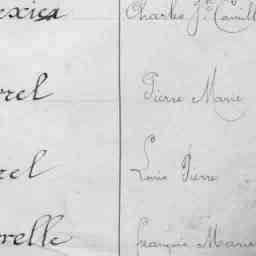 exica Charles Jn Camill
rel Pierre Marie
rel Louis Pierre
relle François Maria